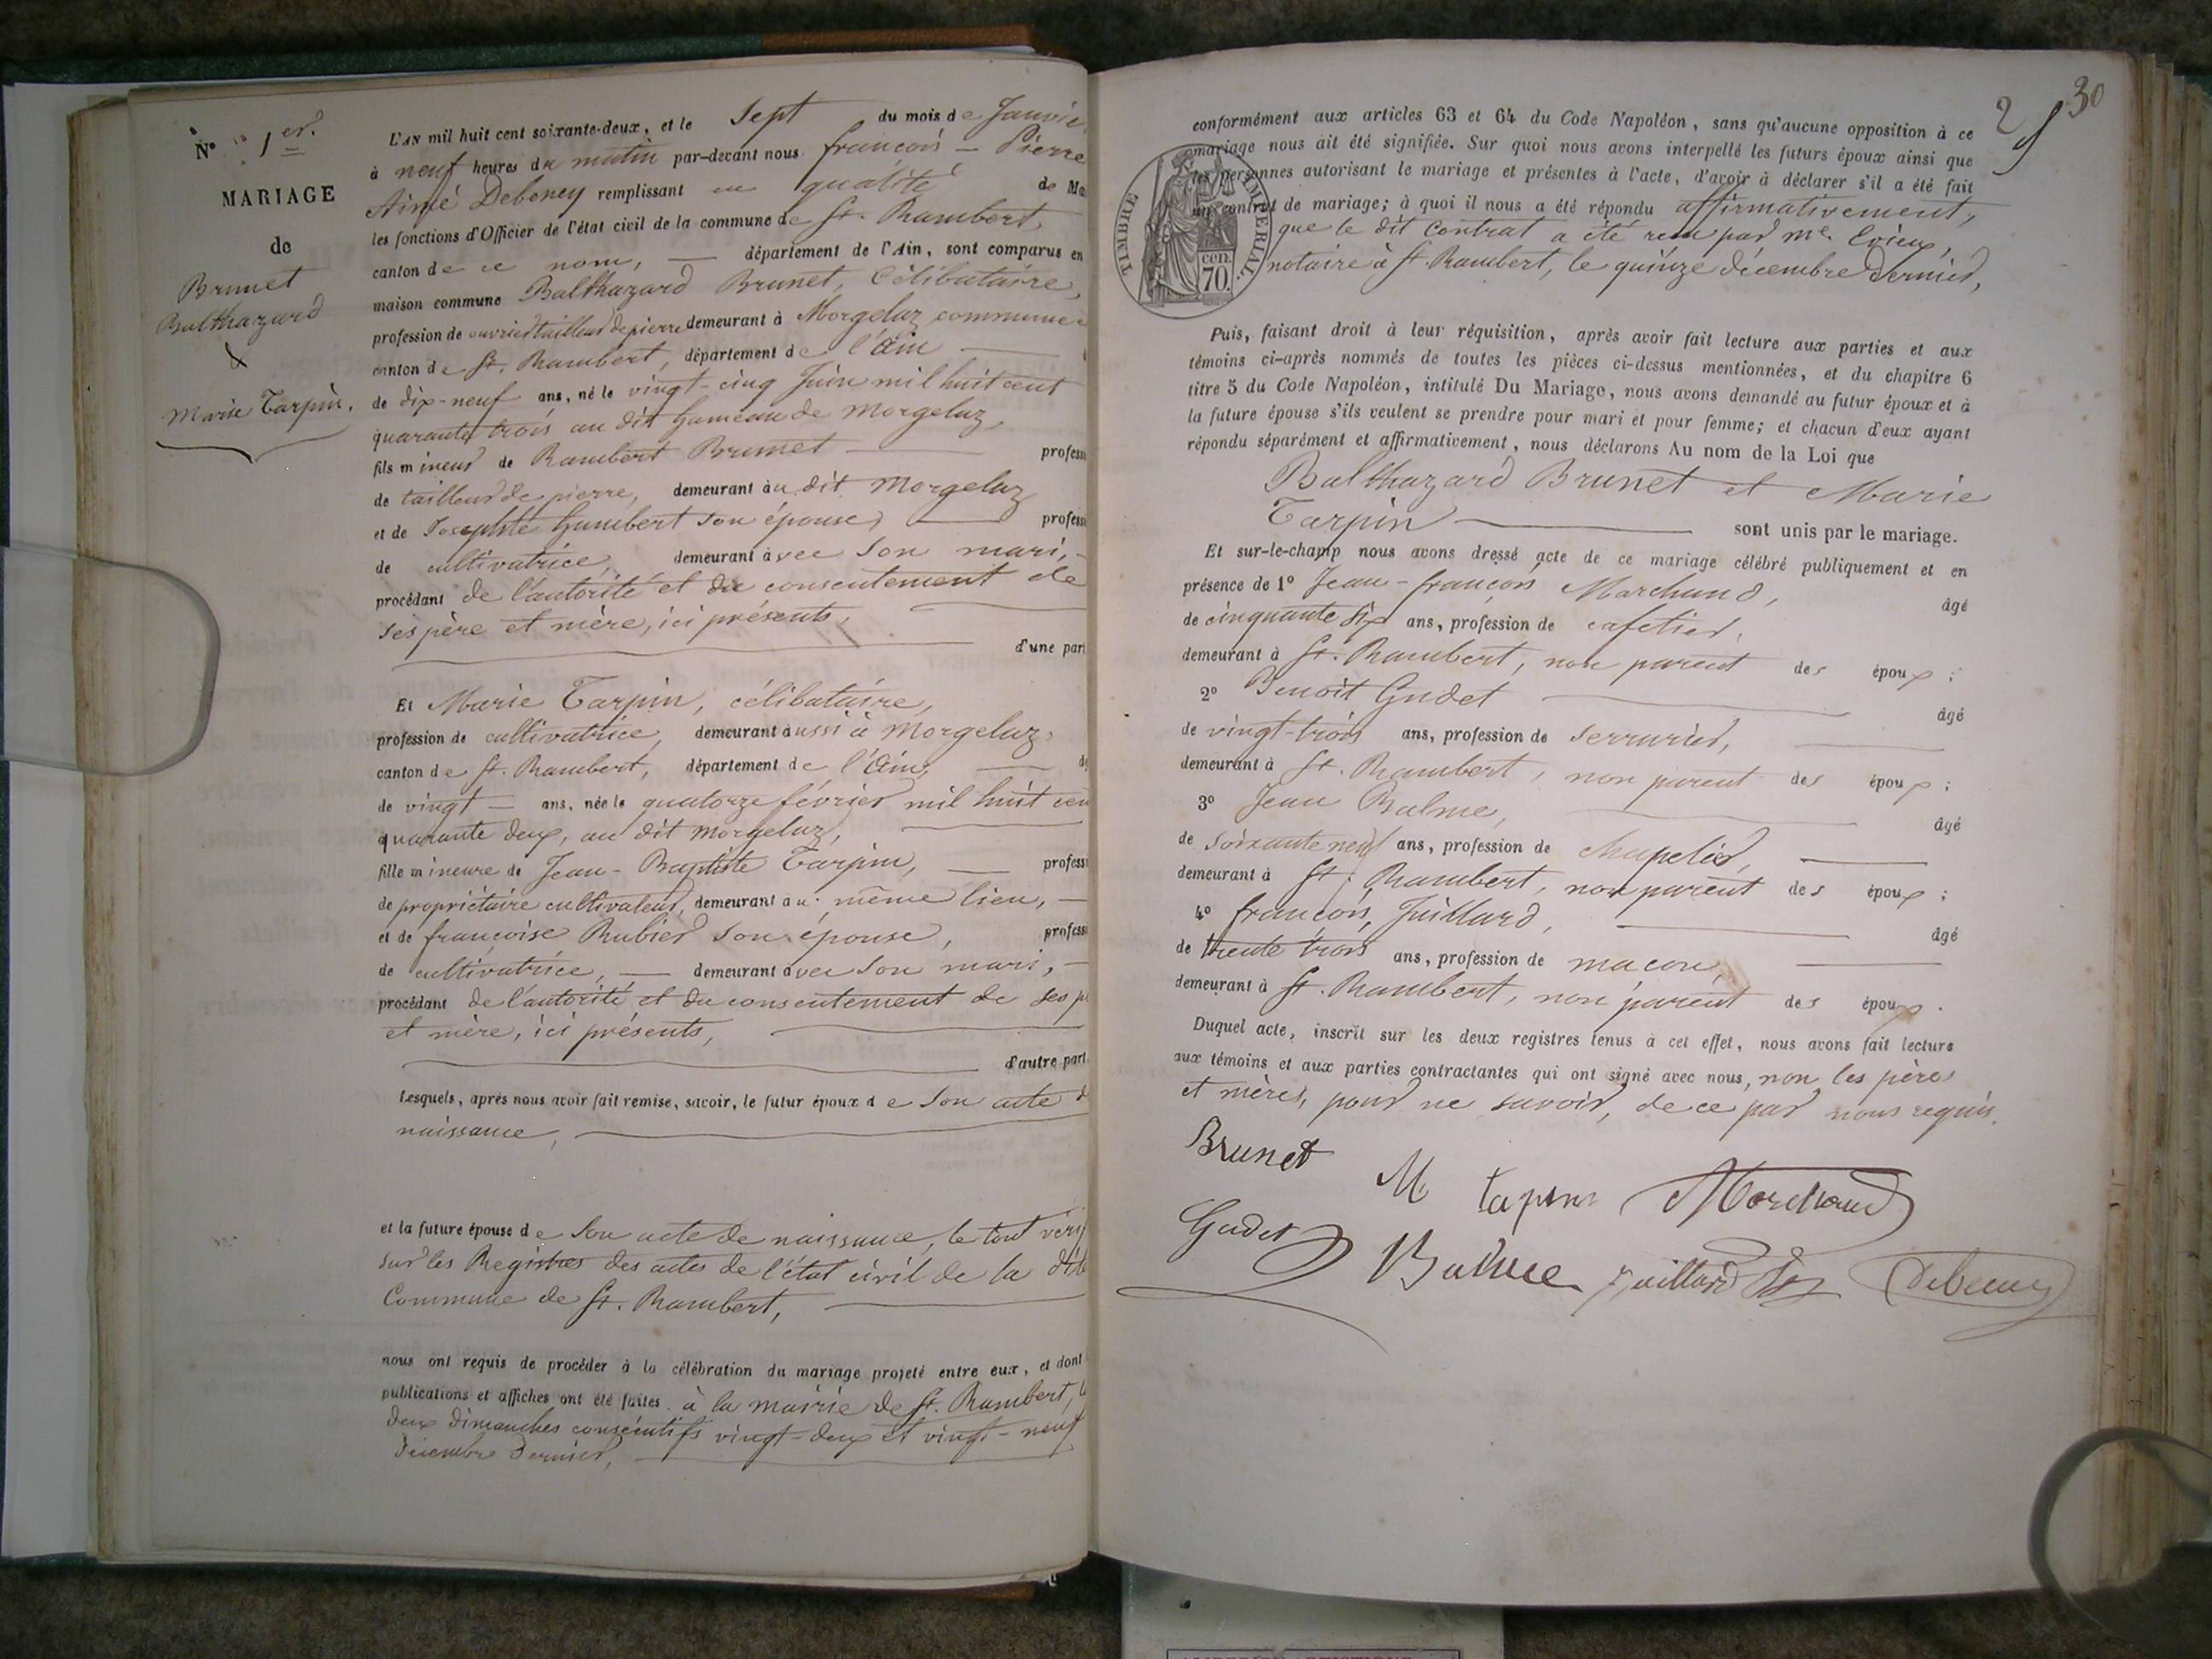 N° 1er.
MARIAGE
de
Brunet
Balthazard
&
Marie Tarpin.
L'AN mil huit cent soixante-deux, et le Sept du mois de Janvie
à neuf heures du matin par-devant nous françois - Pierre
Aimé Debeney remplissant en qualité de Ma
les fonctions d'Officier de l'état civil de la commune de St. Rambert,
canton de ce nom, département de l'Ain, sont comparus en
maison commune Balthazard Brunet, Célibataire,
profession de ouvrier tailleur de pierre demeurant à Morgelaz commune
canton de St. Rambert, département de l'Ain
de dix-neuf ans, né le vingt-cinq Juin mil huit cent
quarante trois au dit hameau de Morgelaz,
fils mineur de Rambert Brunet profess
de tailleur de pierre, demeurant au dit Morgelaz
et de Josephte humbert son épouse, profess
de cultivatrice, demeurant avec son mari,
procédant de l'autorité et du consentement de
ses père et mère, ici présents,
d'une part
Et Marie Tarpin, célibataire,
profession de cultivatrice, demeurant aussi à Morgelaz,
canton de St. Rambert, département de l'Ain,
de vingt ans, née le quatorze février mil huit cen
quarante deux, au dit Morgelaz,
fille mineure de Jean-Baptiste Tarpin, profess
de propriétaire cultivateur, demeurant au même lieu,
et de françoise Rubier son épouse, profess
de cultivatrice, demeurant avec son mari,
procédant de l'autorité et du consentement de ses p
et mère, ici présents,
d'autre part
Lesquels, après nous avoir fait remise, savoir, le futur époux de son acte d
naissance,
et la future épouse de son acte de naissance, le tout véri
sur les Registres des actes de l'état civil de la dite
Commune de St. Rambert,
nous ont requis de procéder à la célébration du mariage projeté entre eux, et dont
publications et affiches ont été faites à la mairie de St. Rambert, l
deux dimanches consécutifs vingt-deux et vingt-neuf
décembre dernier,
2 30
conformément aux articles 63 et 64 du Code Napoléon, sans qu'aucune opposition à ce
mariage nous ait été signifiée. Sur quoi nous avons interpellé les futurs époux ainsi que
les personnes autorisant le mariage et présentes à l'acte, d'avoir à déclarer s'il a été fait
un contrat de mariage; à quoi il nous a été répondu affirmativement,
que le dit Contrat a été reçu par Me. Evieux,
notaire à St. Rambert, le quinze décembre dernier,
TIMBRE IMPÉRIAL
cen.
70.
Puis, faisant droit à leur réquisition, après avoir fait lecture aux parties et aux
témoins ci-après nommés de toutes les pièces ci-dessus mentionnées, et du chapitre 6
titre 5 du Code Napoléon, intitulé Du Mariage, nous avons demandé au futur époux et à
la future épouse s'ils veulent se prendre pour mari et pour femme; et chacun d'eux ayant
répondu séparément et affirmativement, nous déclarons Au nom de la Loi que
Balthazard Brunet et Marie
Tarpin sont unis par le mariage.
Et sur-le-champ nous avons dressé acte de ce mariage célébré publiquement et en
présence de 1° Jean-françois Marchand, âgé
de cinquante six ans, profession de cafetier,
demeurant à St. Rambert, non parent des époux;
2° Benoît Gudet âgé
de vingt-trois ans, profession de serrurier,
demeurant à St. Rambert, non parent des époux;
3° Jean Balme, âgé
de soixante neuf ans, profession de chapelier,
demeurant à St. Rambert, non parent des époux;
4° françois Juillard, âgé
de trente trois ans, profession de maçon,
demeurant à St. Rambert, non parent des époux.
Duquel acte, inscrit sur les deux registres tenus à cet effet, nous avons fait lecture
aux témoins et aux parties contractantes qui ont signé avec nous, non les pères
et mères, pour ne savoir, de ce par nous requis.
Brunet
M tapin Marchand
Gudet Balme Juillard Debeney